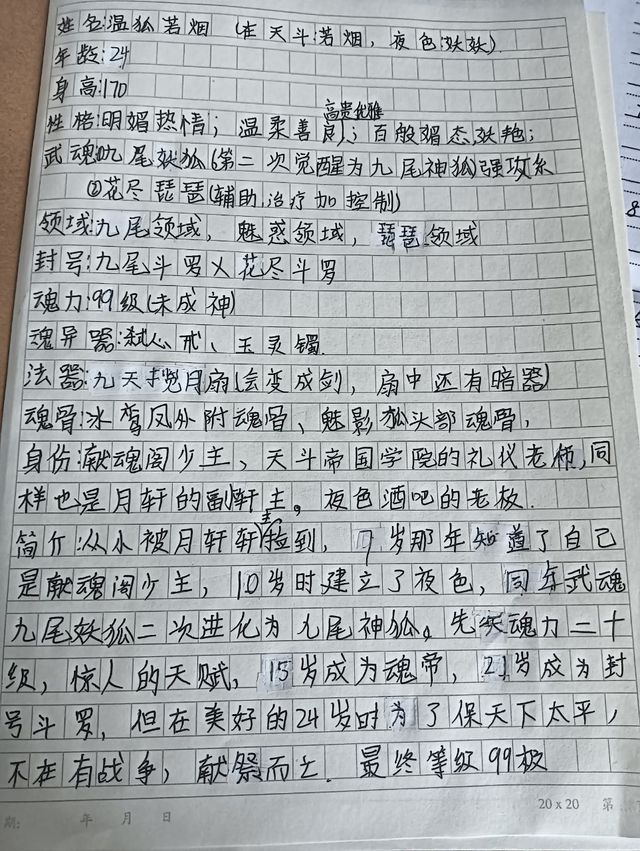 姓名:温狐若烟 (在天斗:若烟,夜色:妖妖).
年龄:24
身高:170
性格:明媚热情;温柔善良;高贵优雅;百般媚态妖艳;
武魂:①九尾妖狐(第二次觉醒为九尾神狐)强攻系
②花尽琵琶(辅助,治疗加控制)
领域:九尾领域,魅惑领域,琵琶领域
封号:九尾斗罗×花尽斗罗
魂力:99级(未成神)
魂异器:弑心戒、玉灵镯.
法器:九天揽月扇(会变成剑,扇中还有暗器)
魂骨:冰鸾凤外附魂骨、魅影狐头部魂骨,
身份:献魂阁少主、天斗帝国学院的礼仪老师,同
样也是月轩的副轩主。夜色酒吧的老板.
简介:从小被月轩轩主捡到,7岁那年知道了自己
是献魂阁少主,10岁时建立了夜色,同年武魂
九尾妖狐二次进化为九尾神狐。先天魂力二十
级,惊人的天赋,15岁成为魂帝,21岁成为封
号斗罗,但在美好的24岁时为了保天下太平,
不在有战争,献祭而亡.最终等级99极
20×20 第
期: 年 月 日